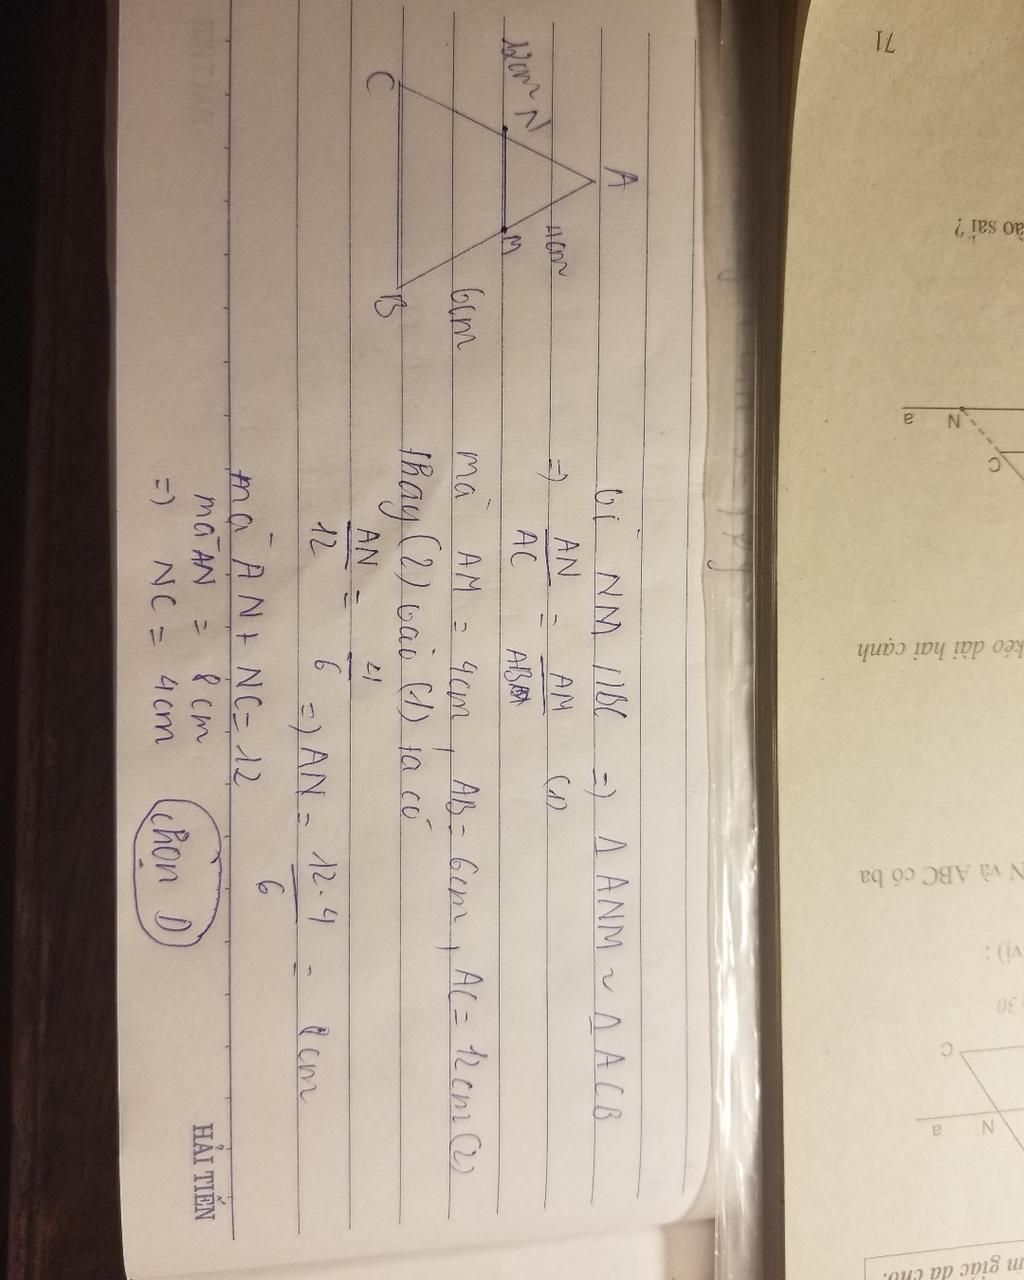 A
4cm
12cm N
M
6cm
C
B
Vì NM // BC => Δ ANM ~ Δ ACB
=> AN/AC = AM/AB (1)
mà AM = 4cm, AB = 6cm, AC = 12cm (2)
thay (2) vào (1) ta có
AN/12 = 4/6 => AN = 12.4/6 = 8cm
mà AN + NC = 12
mà AN = 8cm
=> NC = 4cm
chọn D
HẢI TIẾN
71
ào sai ?
N
a
C
kéo dài hai cạnh
N và ABC có ba
vị) :
30
C
N
a
m giác đã cho.